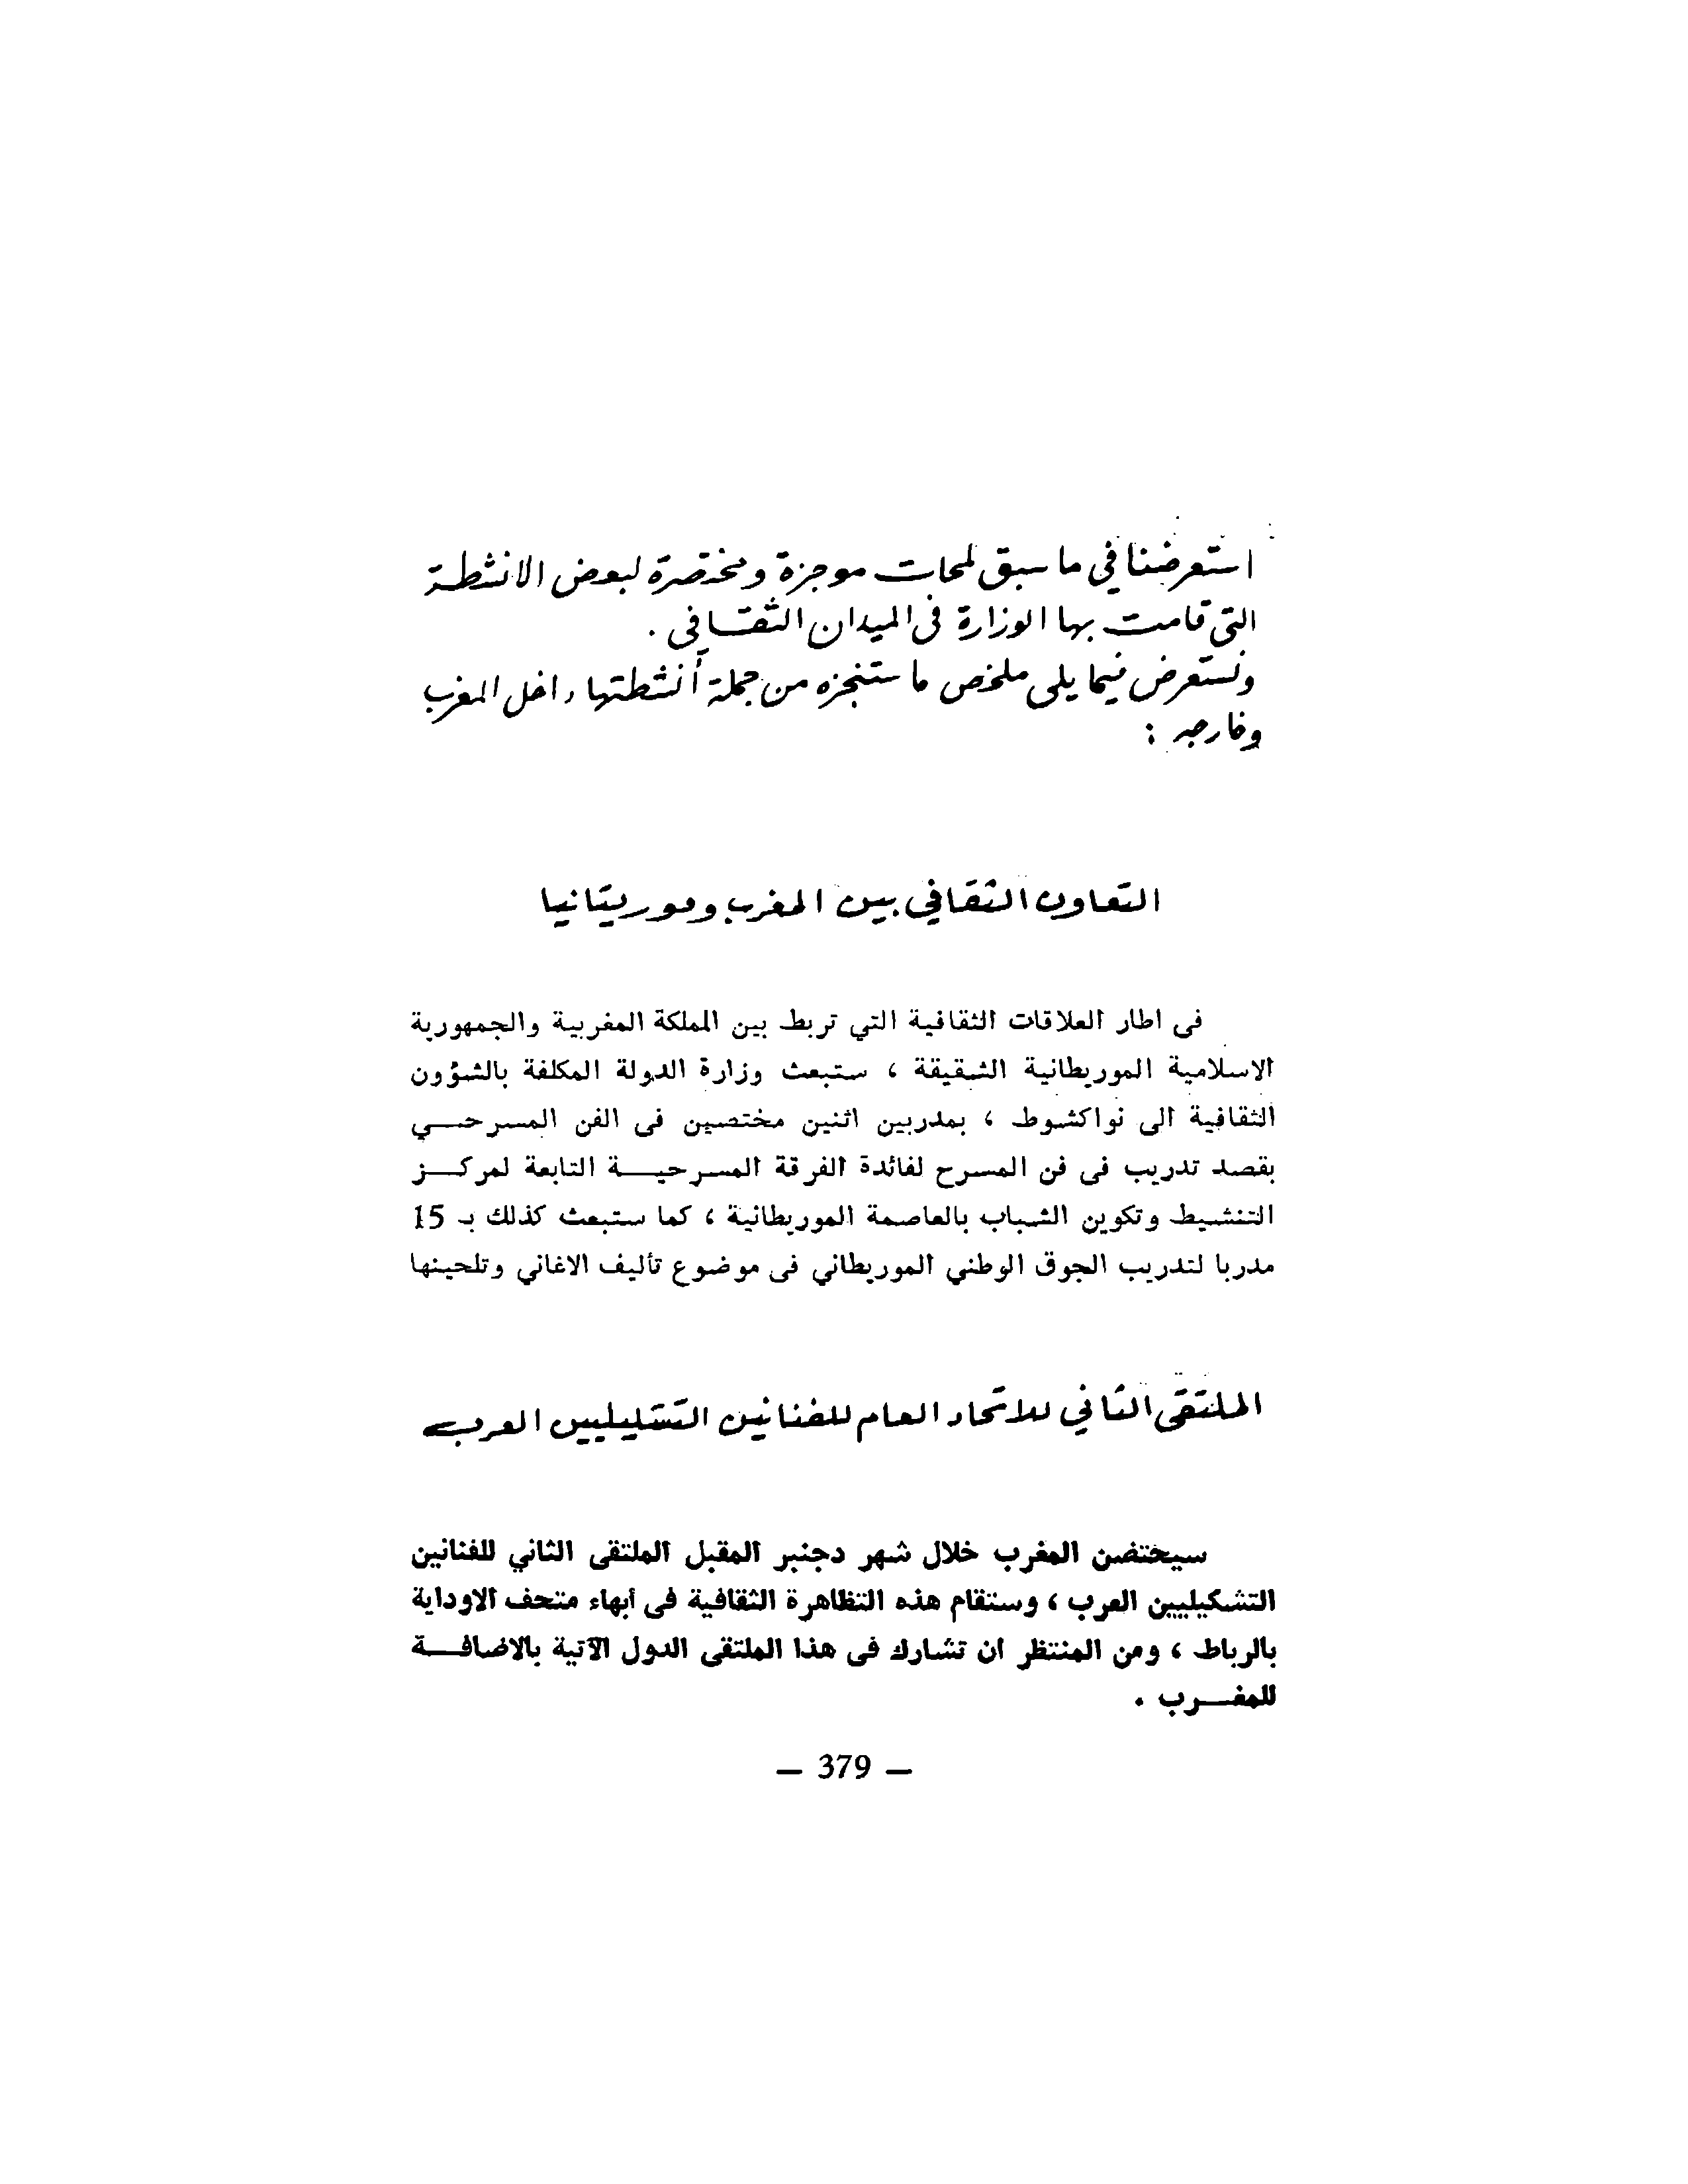 استعرضنا في ما سبق لمحات موجزة ومختصرة لبعض الانشطة
التى قامت بها الوزارة فى الميدان الثقافى .
ونستعرض فيما يلى ملخص ما ستنجزه من جملة أنشطتها داخل المغرب
وخارجه :
التعاون الثقافي بين المغرب وموريتانيا
فى اطار العلاقات الثقافية التي تربط بين المملكة المغربية والجمهورية
الاسلامية الموريطانية الشقيقة ، ستبعث وزارة الدولة المكلفة بالشؤون
الثقافية الى نواكشوط ، بمدربين اثنين مختصين فى الفن المسرحـــي
بقصد تدريب فى فن المسرح لفائدة الفرقة المسرحيـــة التابعة لمركـــز
التنشيط وتكوين الشباب بالعاصمة الموريطانية ، كما ستبعث كذلك بـ 15
مدربا لتدريب الجوق الوطني الموريطاني فى موضوع تأليف الاغاني وتلحينها
الملتقى الثاني للاتحاد العام للفنانين التشكيليين العرب
سيحتضن المغرب خلال شهر دجنبر المقبل الملتقى الثاني للفنانين
التشكيليين العرب ، وستقام هذه التظاهرة الثقافية فى أبهاء متحف الاوداية
بالرباط ، ومن المنتظر ان تشارك فى هذا الملتقى الدول الآتية بالاضافـــة
للمغـــرب .
— 379 —